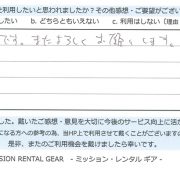 を利用したいと思われましたか？その他感想・ご要望がござい
したい　b. どちらともいえない　c. 利用はしない（理由
です。またよろしくお願いします。
した。戴いたご感想・意見を大切に今後のサービス向上に活か
になる方への参考の為、当HP上で利用させて戴くことがございま
是非、またのご利用機会を戴けましたら幸いです。
SION RENTAL GEAR　- ミッション・レンタル ギア -